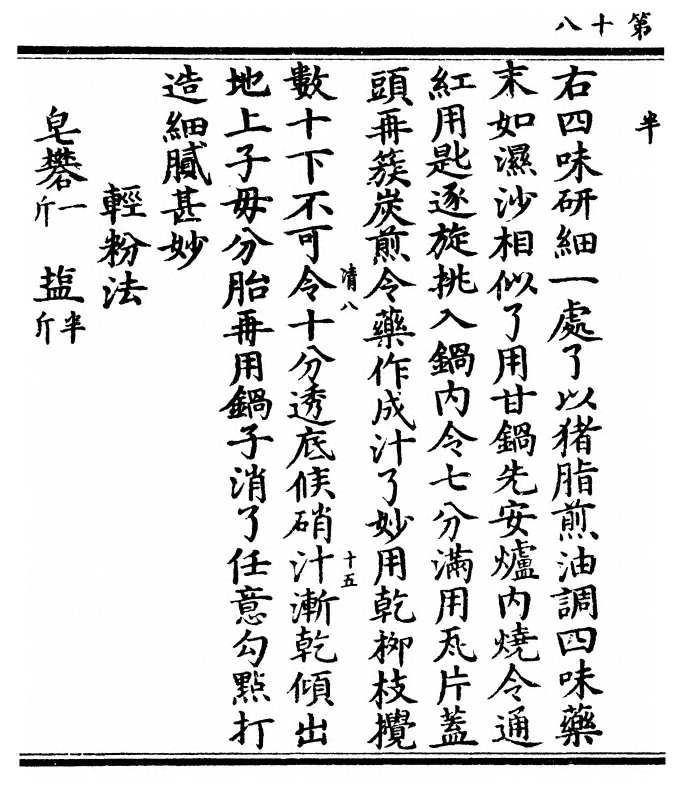 第十八
半
右四味研細一處了以猪脂煎油調四味藥
末如濕沙相似了用甘鍋先安爐内燒令通
紅用匙逐旋挑入鍋内令七分滿用瓦片蓋
頭再簇炭煎令藥作成汁了妙用乾柳枝攪
清八
十五
數十下不可令十分透底候硝汁漸乾傾出
地上子毋分胎再用鍋子消了任意勾點打
造細膩甚妙
輕粉法
皂礬一斤 塩半斤